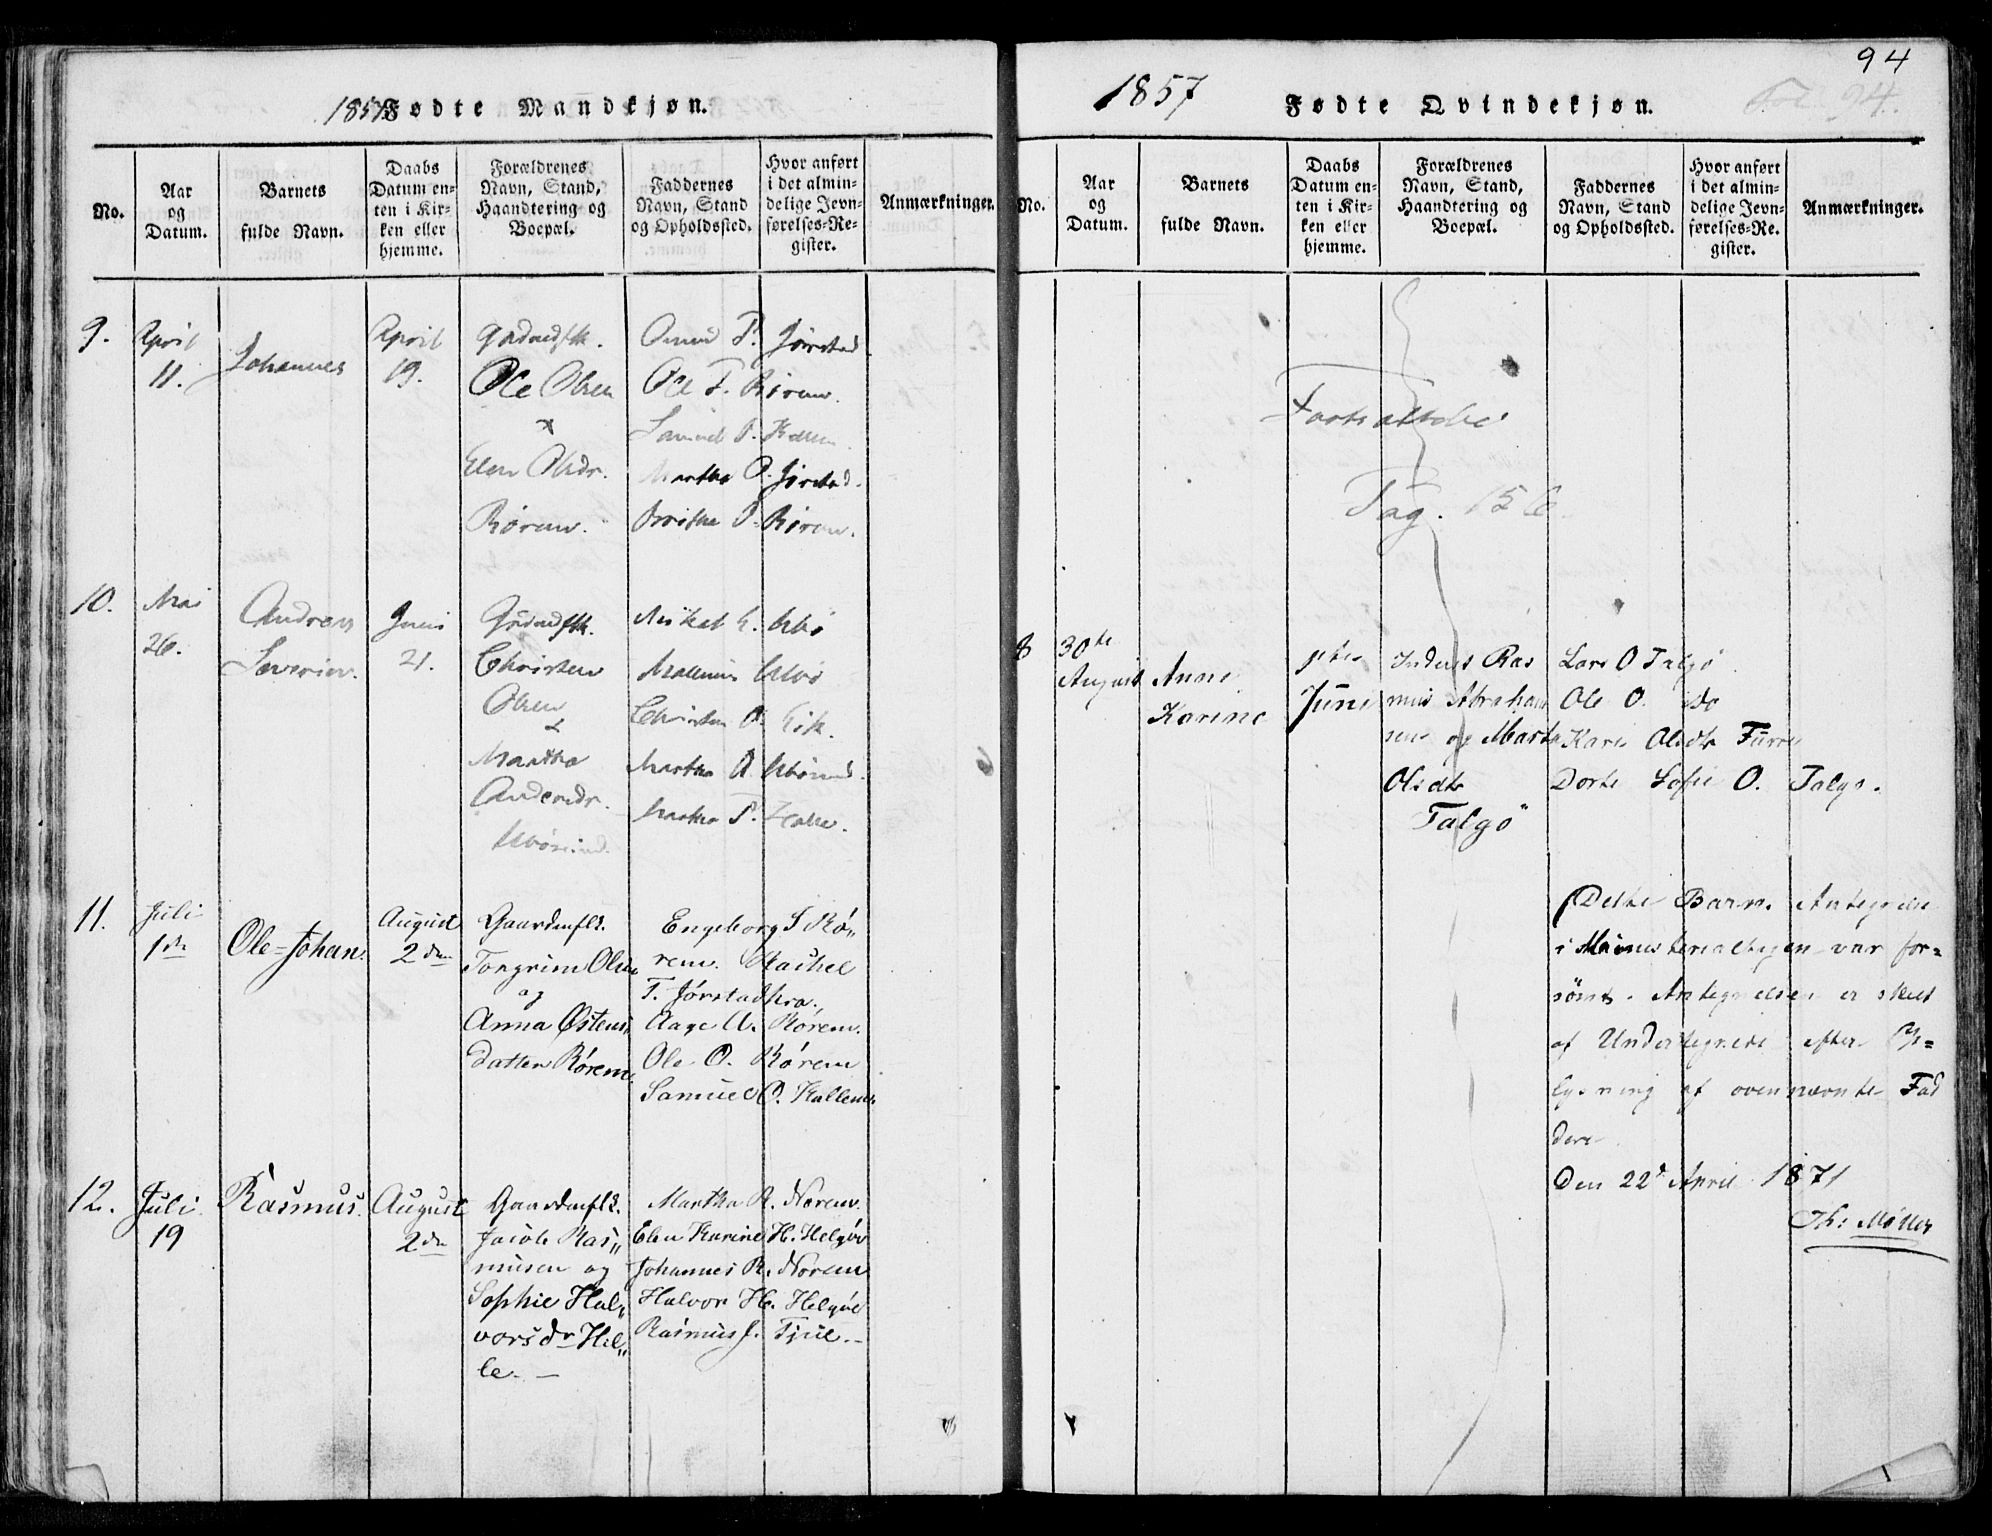 1857 Fødte Mandkjøn.
No.
Aar
og
Datum.
Barnets
fulde Navn.
Daabs
Datum en-
ten i Kir-
ken eller
hjemme.
Forældrenes
Navn, Stand,
Haandtering og
Boepæl.
Faddernes
Navn, Stand
og Opholdssted.
Hvor anført
i det almin-
delige Jevn-
førelses-Re-
gister.
Anmærkninger.
9.
April
11.
Johannes
April
19.
Ole Olsen
Elen Olsdr.
Rørem.
P. Jørstad.
Ole T. Rørem.
Martha O. Jørstad.
Rørem.
10.
Mai
26.
Andreas
Severin.
Juni
21.
Christen
Olsen
&
Martha
Andersdr.
Christen
Martha
Martha T.
11.
Juli
1de
Ole-Johan.
August
2den
Gaardmflk.
Torgrim Olsen
og
Anna Østens„
datter Rørem.
Engeborg S Rø„
rem. Rachel
T. Jørstad
Aage A. Rørem.
Ole O. Rørem
Samuel O. Hallem
12.
Juli
19
Rasmus.
August
2de
Gaardmflk.
Jacob Ras„
musen og
Sophie Hal„
vorsdr Hel„
le. —
Martha R. Norem.
Elen Karine H. Helgøe
Johannes R. Norem
Halvor H. Helgøe
Rasmus J. Fjul. —
94
1857
Fødte Qvindekjøn.
Fol. 94.
No.
Aar
og
Datum.
Barnets
fulde Navn.
Daabs
Datum en-
ten i Kir-
ken eller
hjemme.
Forældrenes
Navn, Stand,
Haandtering og
Boepæl.
Faddernes
Navn, Stand
og Opholdssted.
Hvor anført
i det almin-
delige Jevn-
førelses-Re-
gister.
Anmærkninger.
Fortsættelse
Pag. 156.
8
30te
August
Anne
Karine
Juni
Inderst Ras
mus Abraham
sen og Marta
Olsdtr
Talgø
Lars O Talgø
Ole O. do
Kari Olsdtr Furre
Dorte Sofie O. Talgø.
Dette Barns Antegnelse
i Ministerialbogen var for=
sømt. Antegnelsen er skeet
af Undertegnede efter Op=
lysning af ovennævnte Fad
dere
Den 22d April 1871
Th: Møller